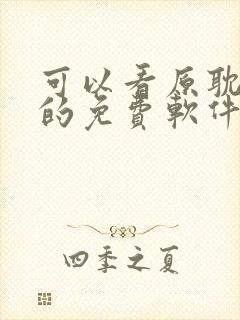 可以看原耽
的免費軟件
四季之夏